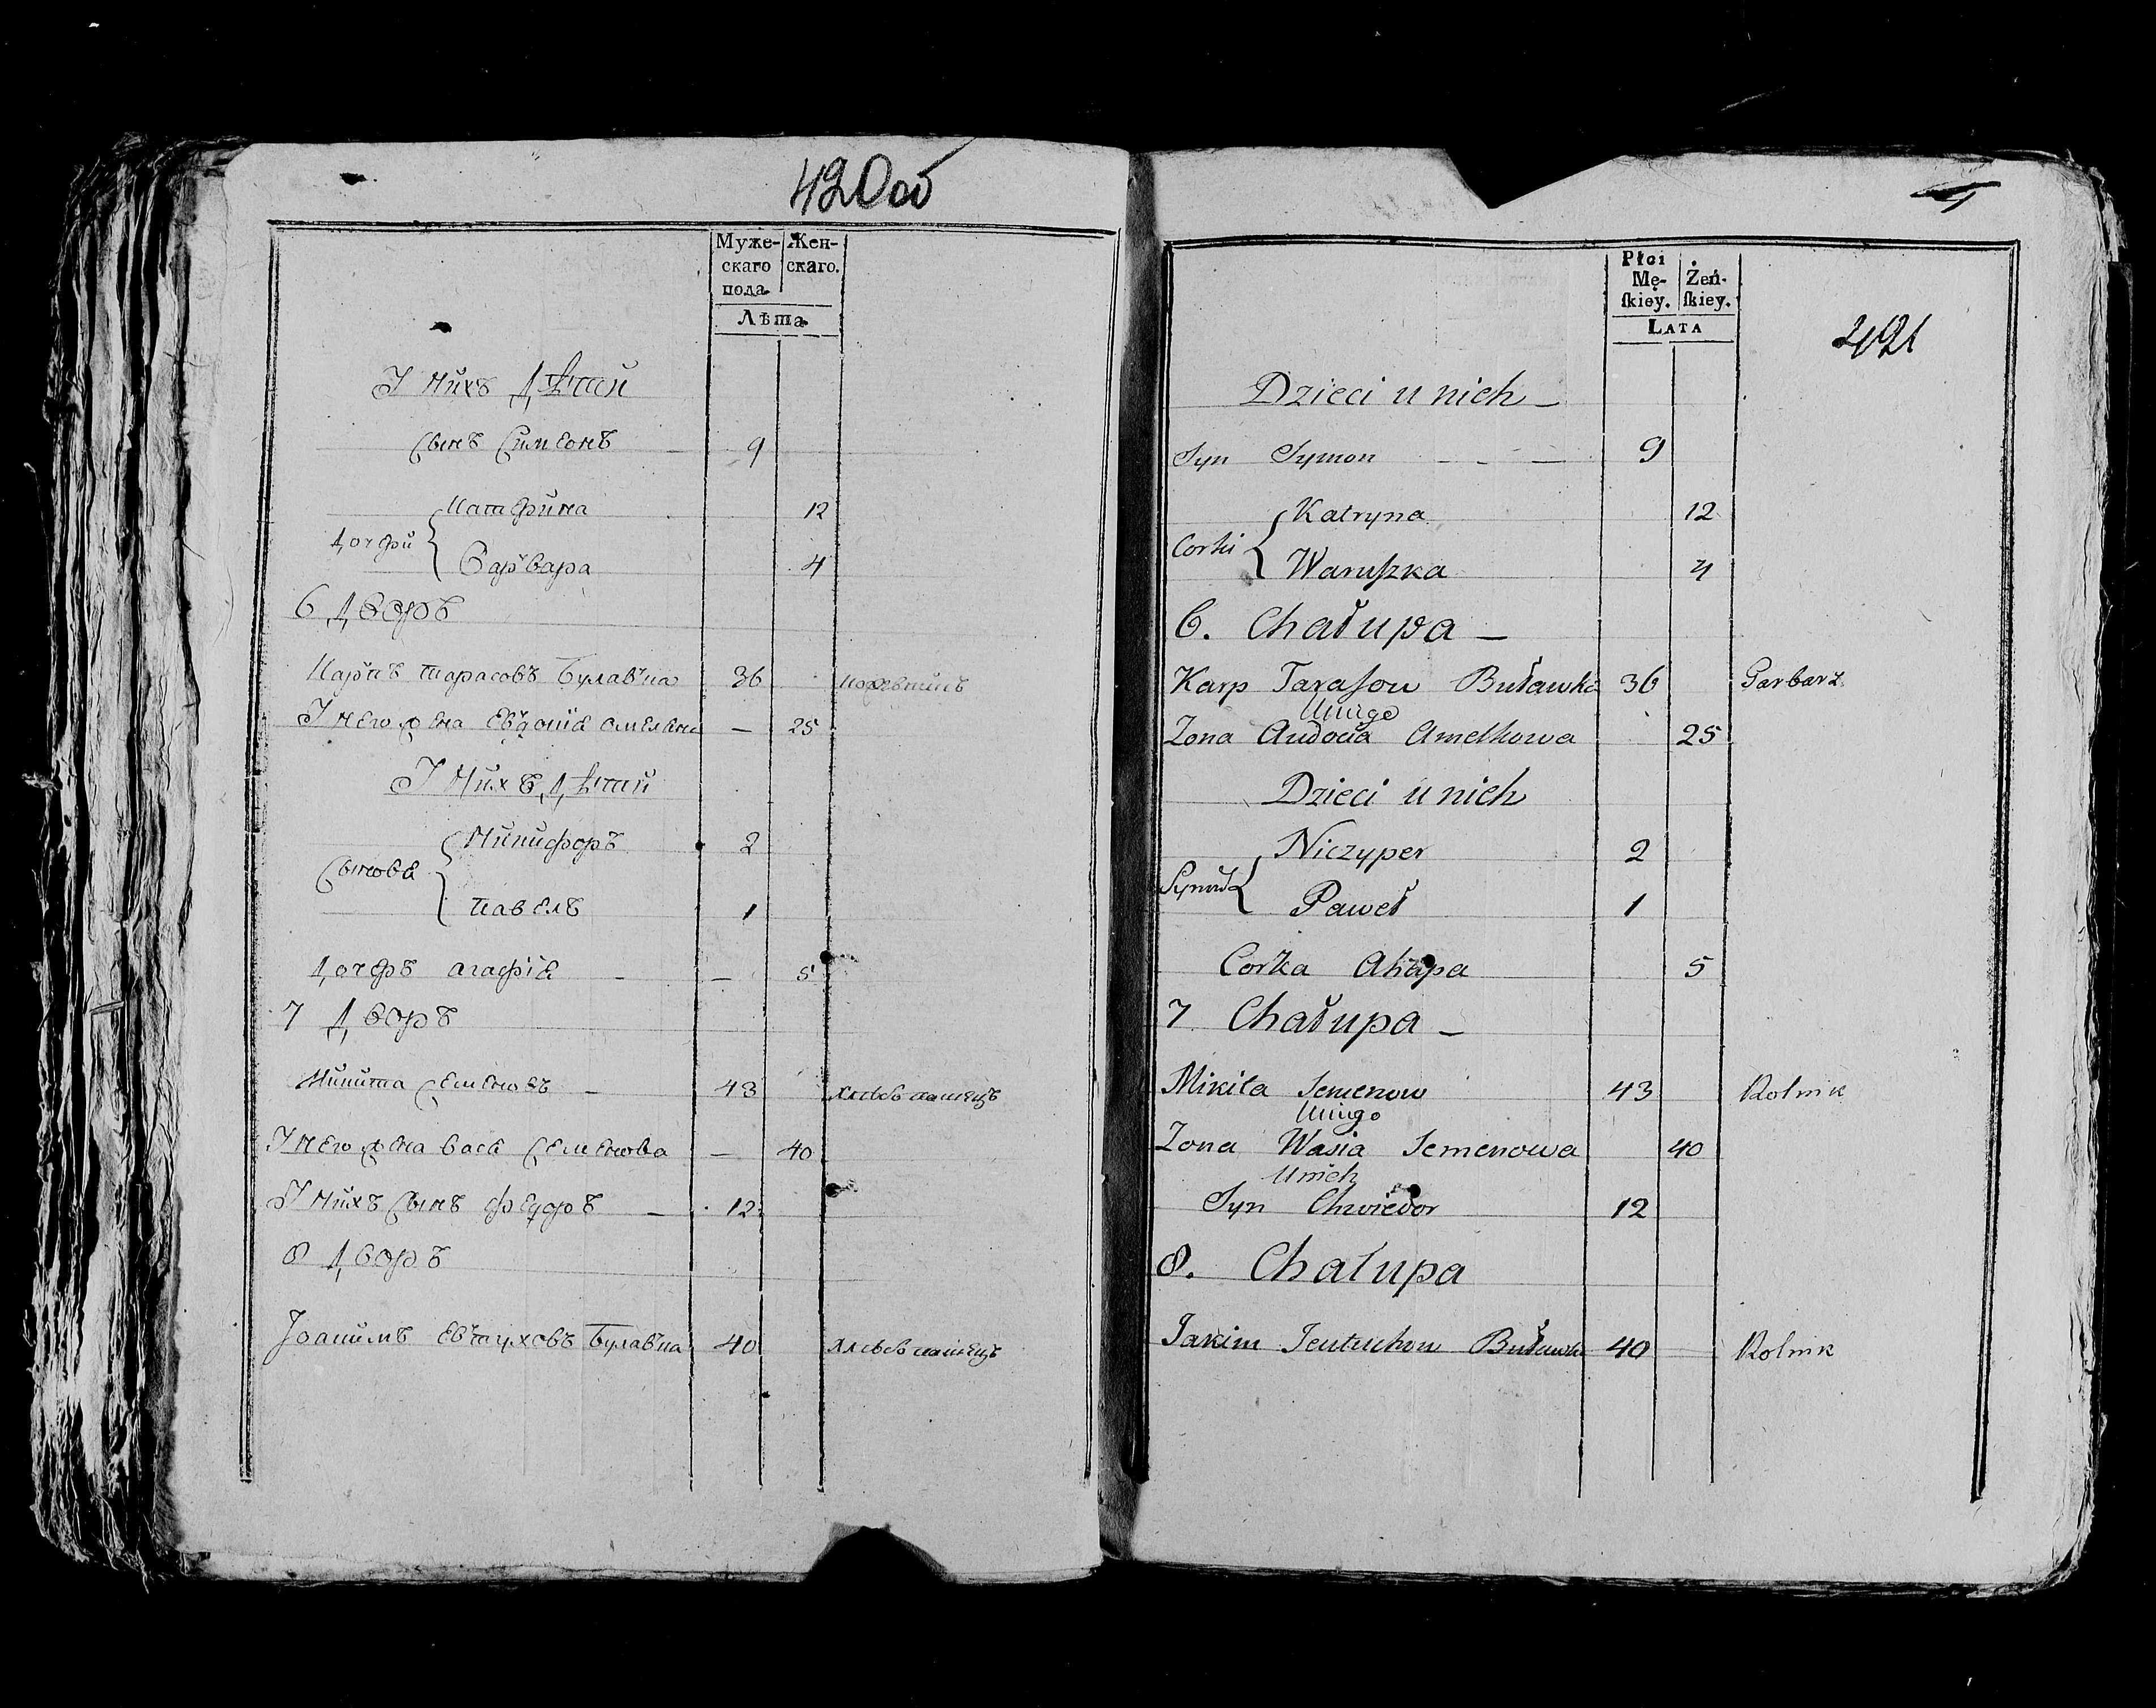 420 об
Муже-
скаго
пола
Жен-
скаго.
Лѣта
У нихъ Дѣти
Сынъ Симеонъ 9
Катерина 12
Дочери
Варвара 4
6 Дворъ
Карпъ Тарасовъ Булавка 36
У него жена Евдокія 25
У нихъ Дѣти
Никифоръ 2
Сыновья
Павелъ 1
Дочерь Агафія 5
7 Дворъ
Никита Семеновъ 43 хлѣбопашецъ
У него жена Вася Семенова 40
У нихъ Сынъ Федоръ 12
8 Дворъ
Іоакимъ Евтуховъ Булавка 40 хлѣбопашецъ
421
Płci
Mę-
ſkiey.
Żeń-
ſkiey.
LATA
Dzieci u nich
Syn Symon 9
Katryna 12
Corki
Waruſzka 4
6. Chałupa
Karp Taraſow Buławka 36 Garbarz
Unirgo
Zona Audocia Amelkowa 25
Dzieci u nich
Niczyper 2
Synow
Paweł 1
Corka Ahapa 5
7 Chałupa
Mikita Semenow 43 Rolnik
Unirgo
Zona Wasia Semenowa 40
Unich
Syn Chwiedor 12
8. Chałupa
Jakim Jeutuchow Buławka 40 Rolnik